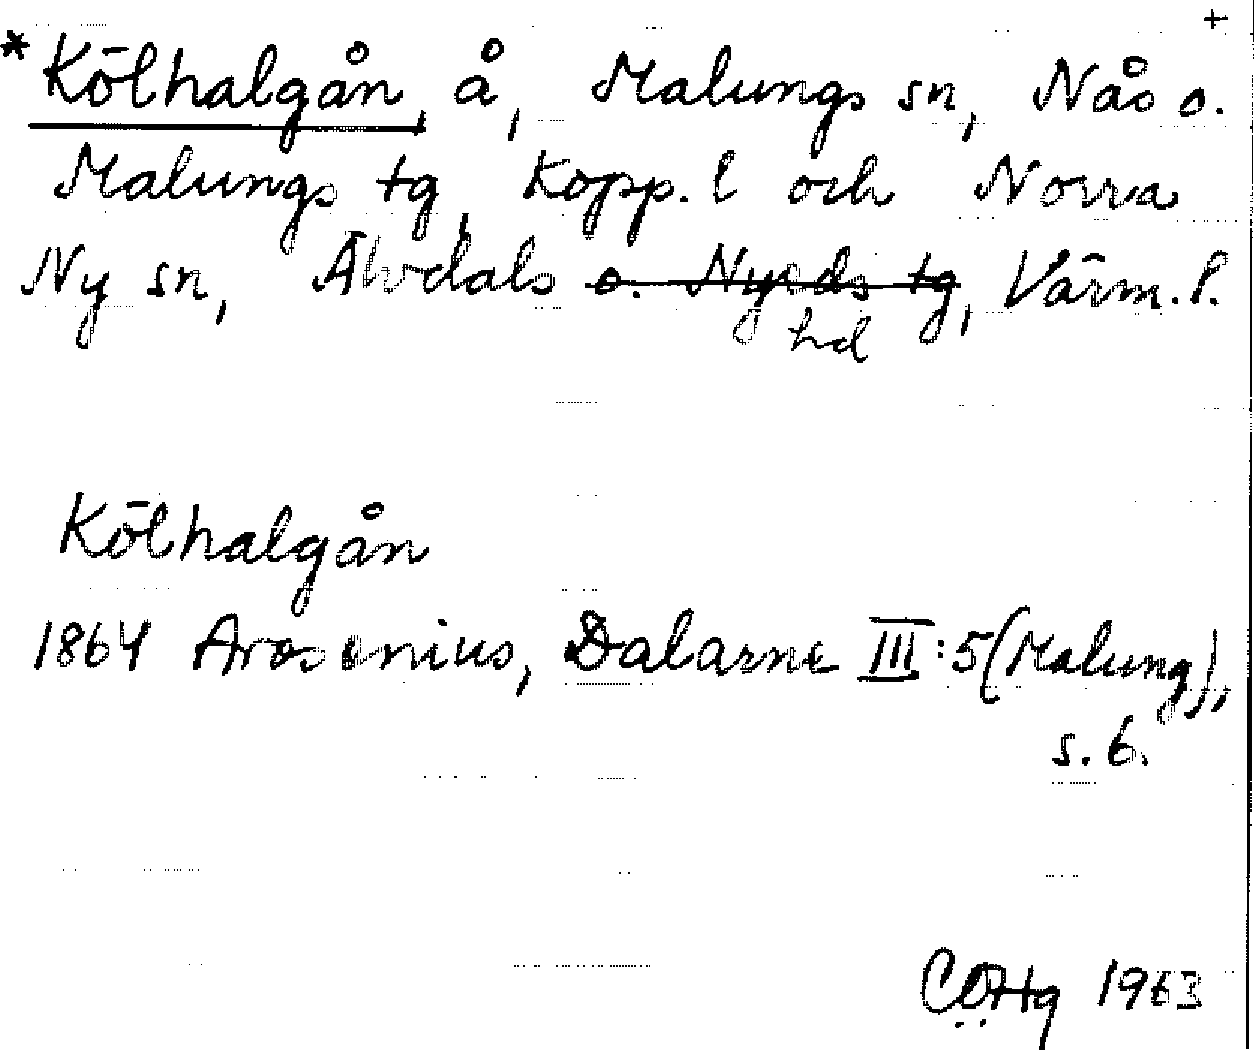 +
*Kölhalgån, å, Malungs sn, Nås o.
Malungs tg, Kopp. l och Norra
Ny sn, Älvdals o. Nyeds tg, Värm. l.
hd
Kölhalgån
1864 Arosenius, Dalarne III:5 (Malung),
s. 6.
1963